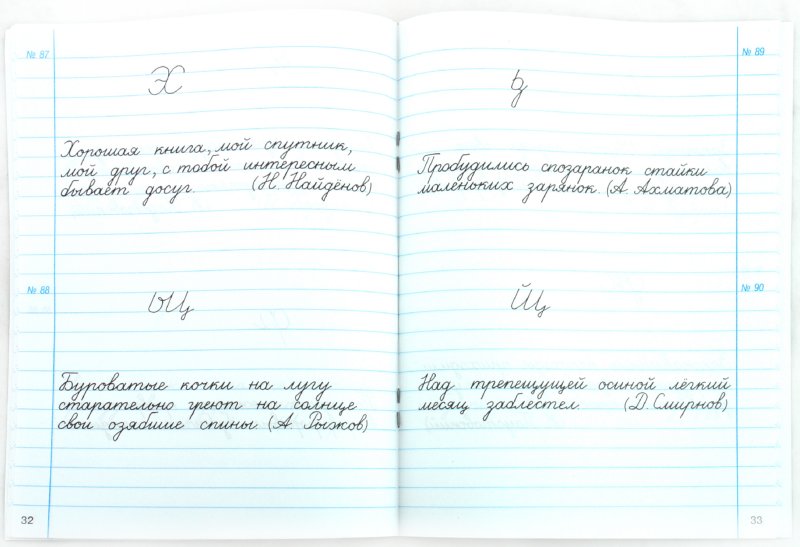 № 87
ЭХ
Хорошая книга, мой спутник,
мой друг, с тобой интересным
бывает досуг. (Н. Найдёнов)
№ 88
Буроватые кочки на лугу
старательно греют на солнце
свои озябшие спины. (А. Рыжков)
32
№ 89
Пробудились спозаранок стайки
маленьких зарянок. (А. Ахматова)
№ 90
Йщ
Над трепещущей осиной лёгкий
месяц заблестел. (Д. Смирнов)
33